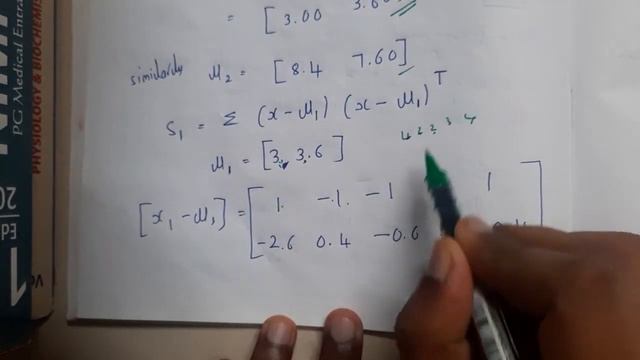 = [3.00 3.60
similarly μ₂ = [8.4 7.60]
S₁ = Σ (x-μ₁) (x-μ₁)ᵀ
4 2 2 3 4
μ₁ = [3. 3.6]
[x₁-μ₁] = [1. -1. -1 1
-2.6 0.4 -0.6
PG Medical Entra
PHYSIOLOGY & BIOCHEMIS
20
ED
1